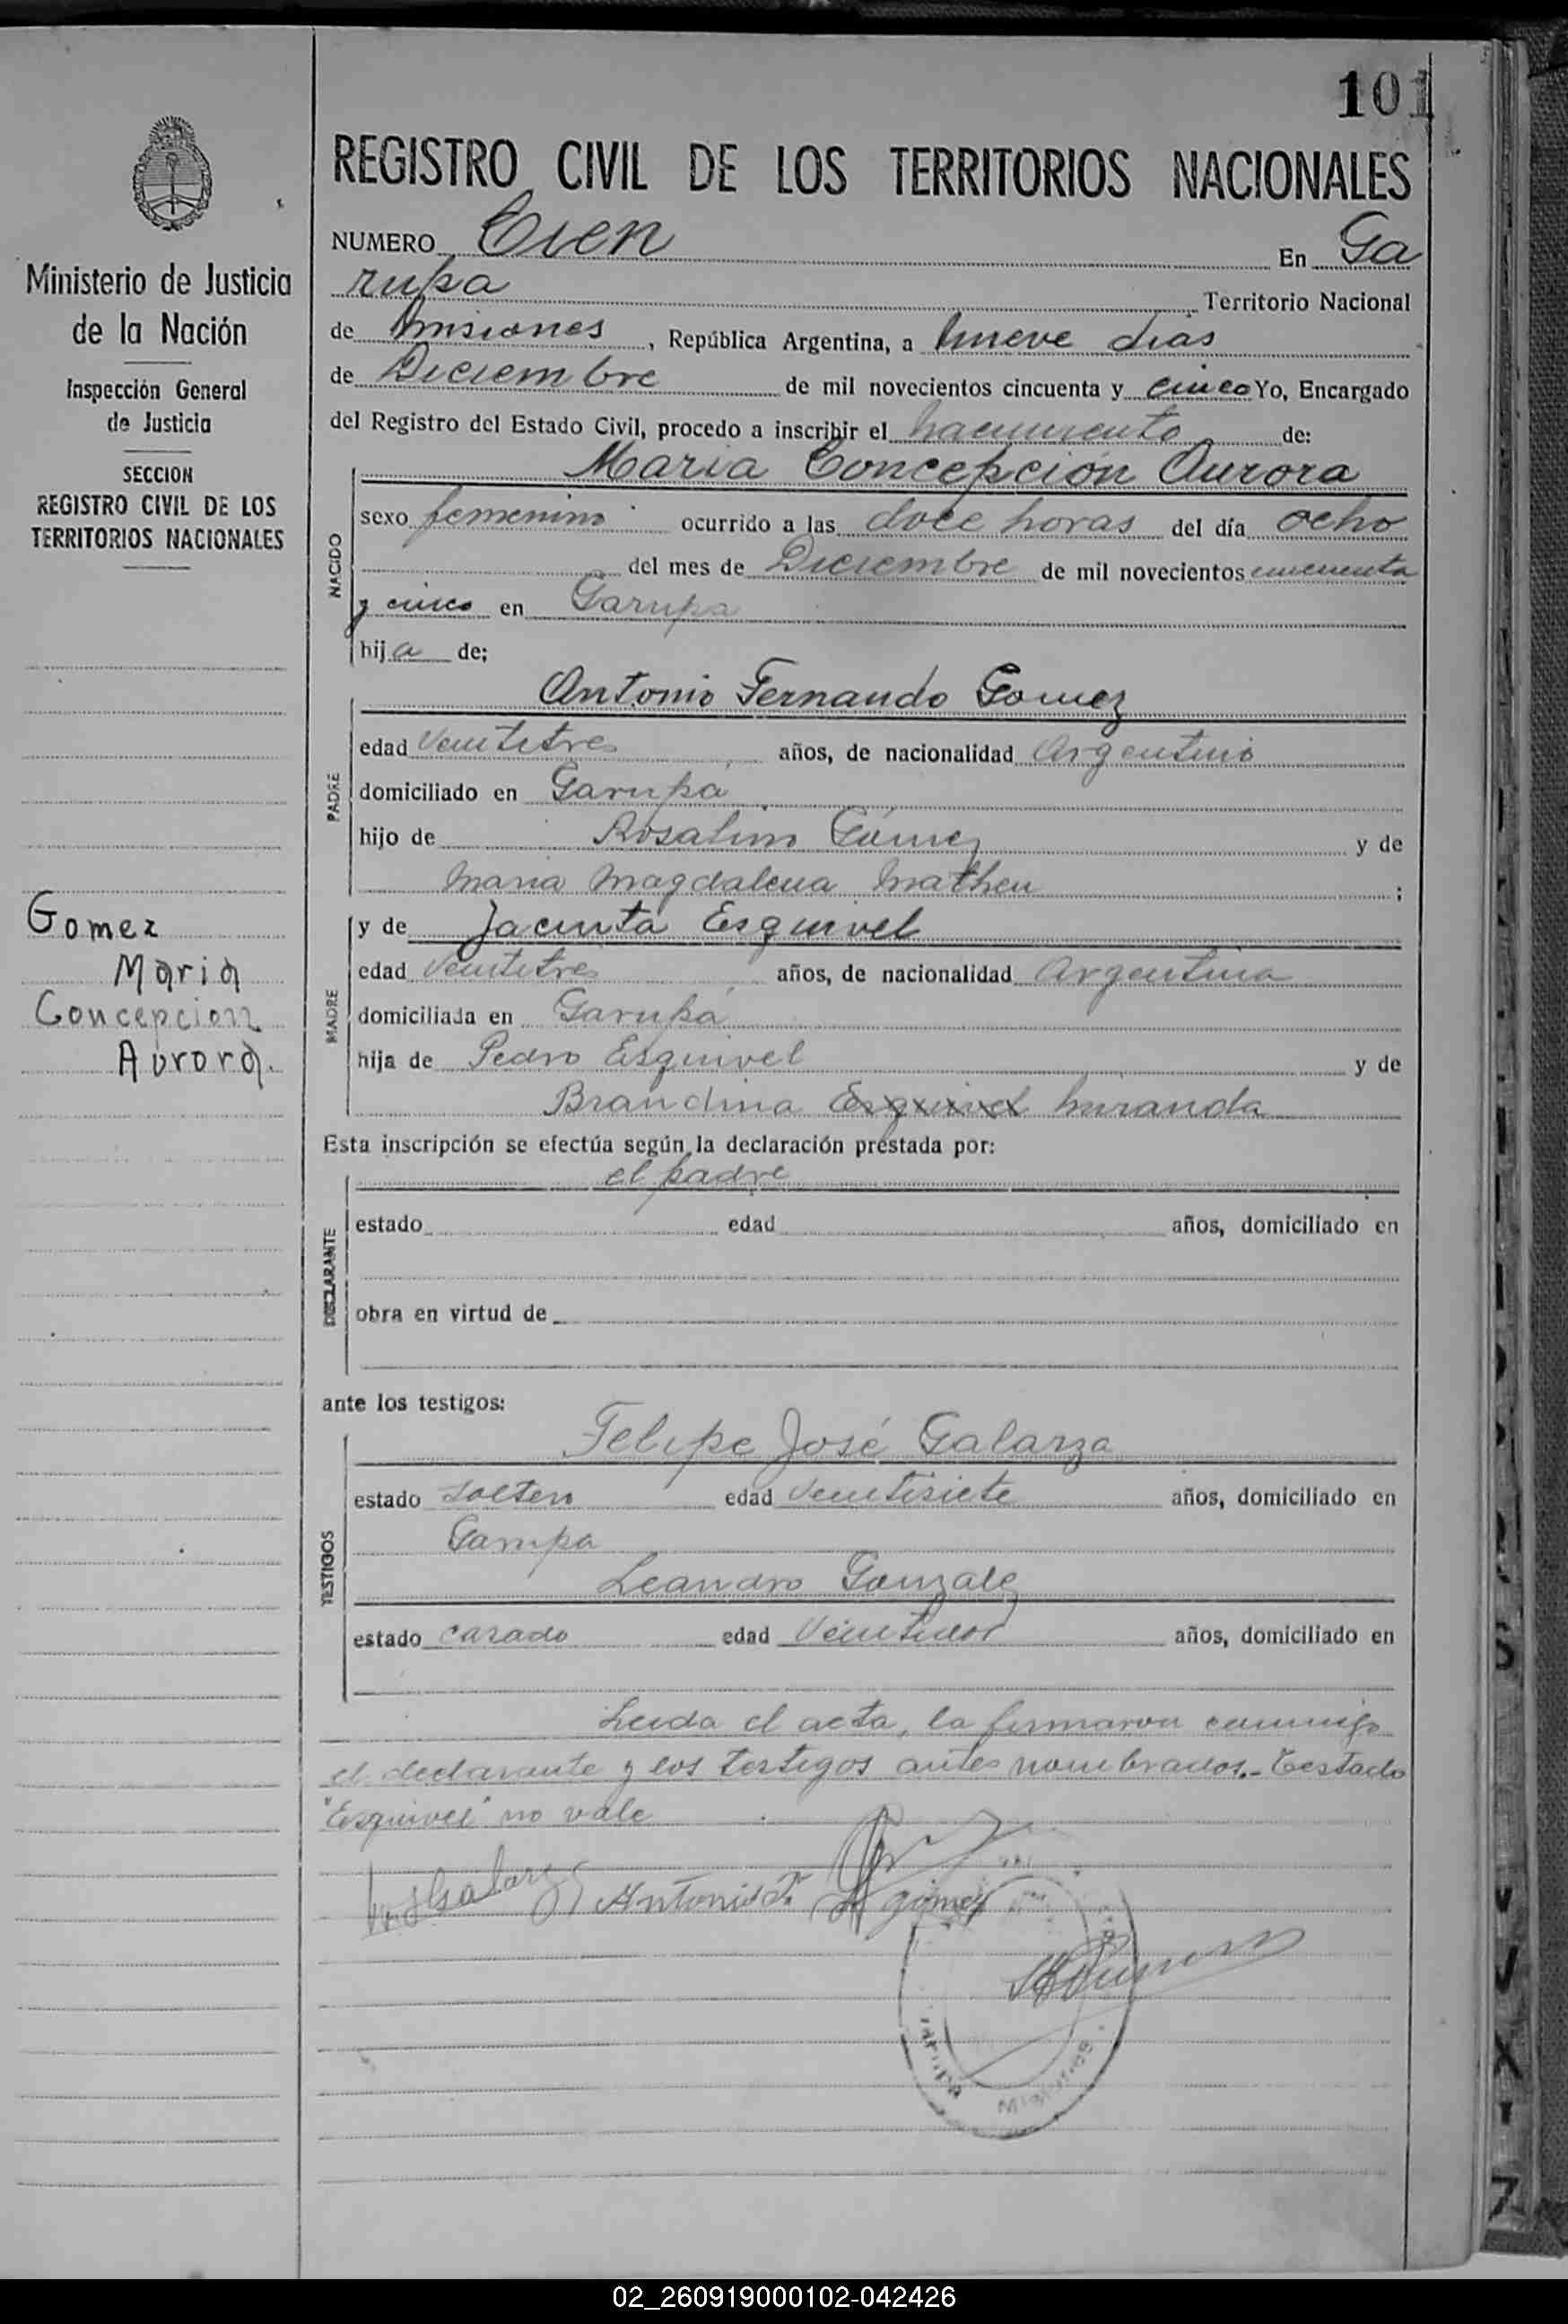 101
REGISTRO CIVIL DE LOS TERRITORIOS NACIONALES
NUMERO Cien En Ga
rupa Territorio Nacional
de Misiones, República Argentina, a nueve dias
de Diciembre de mil novecientos cincuenta y cinco Yo, Encargado
del Registro del Estado Civil, procedo a inscribir el nacimiento de:
Maria Concepción Aurora
NACIDO
sexo femenino ocurrido a las doce horas del día ocho
del mes de Diciembre de mil novecientos cincuenta
y cinco en Garupa
hija de;
Antonio Fernando Gomez
PADRE
edad Veintitres años, de nacionalidad Argentino
domiciliado en Garupá
hijo de Rosalino Gómez y de
Maria Magdalena Matheu ;
MADRE
y de Jacinta Esquivel
edad Veintitres años, de nacionalidad Argentina
domiciliada en Garupá
hija de Pedro Esquivel y de
Brandina Esquivel Miranda
Esta inscripción se efectúa según la declaración prestada por:
el padre
DECLARANTE
estado edad años, domiciliado en
obra en virtud de
ante los testigos:
Felipe José Galarza
TESTIGOS
estado soltero edad Veintisiete años, domiciliado en
Garupa
Leandro Gonzalez
estado casado edad Veintidos años, domiciliado en
Leida el acta, la firmaron conmigo
el declarante y los testigos antes nombrados.- Testado
"Esquivel" no vale
Antonio F. gomez
Misiones
Ministerio de Justicia
de la Nación
Inspección General
de Justicia
SECCION
REGISTRO CIVIL DE LOS
TERRITORIOS NACIONALES
Gomez
Maria
Concepcion
Aurora.
02_260919000102-042426